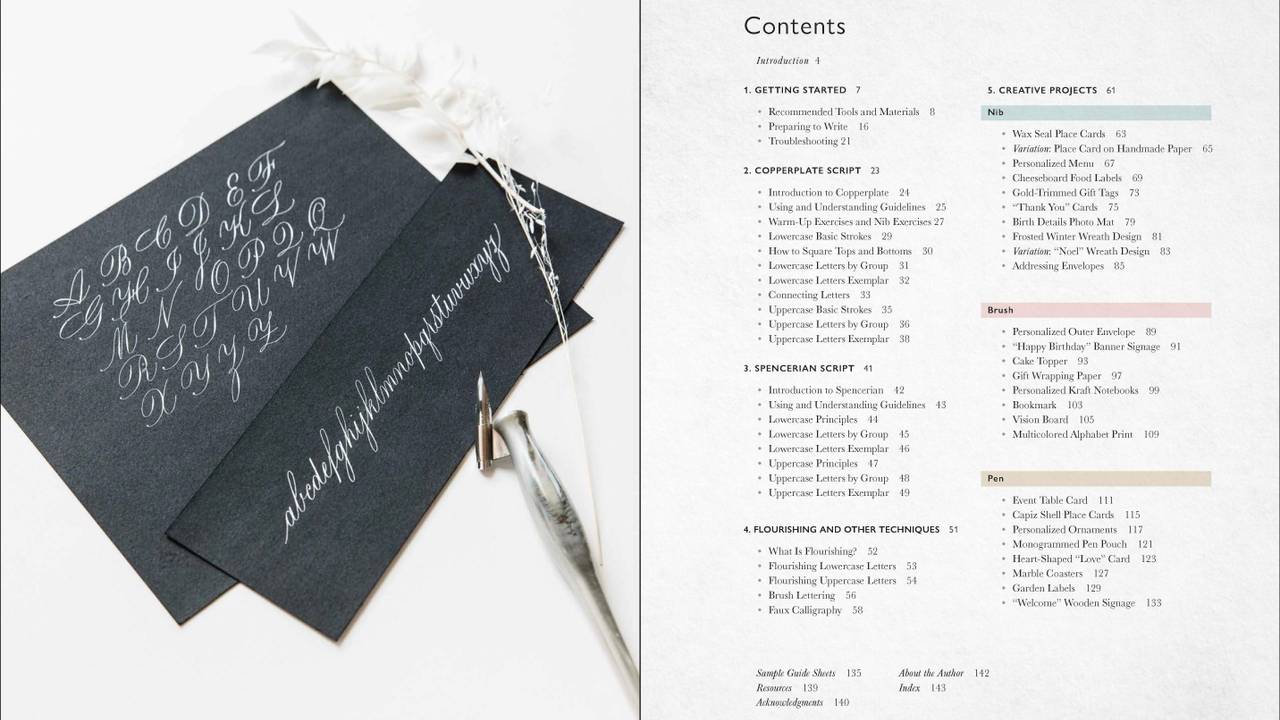 A B C D E F
G H I J K L
M N O P Q Q
R S T U V W
X Y Y Z
abcdefghijklmnopqrstuvwxyz
Contents
Introduction 4
1. GETTING STARTED 7
• Recommended Tools and Materials 8
• Preparing to Write 16
• Troubleshooting 21
2. COPPERPLATE SCRIPT 23
• Introduction to Copperplate 24
• Using and Understanding Guidelines 25
• Warm-Up Exercises and Nib Exercises 27
• Lowercase Basic Strokes 29
• How to Square Tops and Bottoms 30
• Lowercase Letters by Group 31
• Lowercase Letters Exemplar 32
• Connecting Letters 33
• Uppercase Basic Strokes 35
• Uppercase Letters by Group 36
• Uppercase Letters Exemplar 38
3. SPENCERIAN SCRIPT 41
• Introduction to Spencerian 42
• Using and Understanding Guidelines 43
• Lowercase Principles 44
• Lowercase Letters by Group 45
• Lowercase Letters Exemplar 46
• Uppercase Principles 47
• Uppercase Letters by Group 48
• Uppercase Letters Exemplar 49
4. FLOURISHING AND OTHER TECHNIQUES 51
• What Is Flourishing? 52
• Flourishing Lowercase Letters 53
• Flourishing Uppercase Letters 54
• Brush Lettering 56
• Faux Calligraphy 58
5. CREATIVE PROJECTS 61
Nib
• Wax Seal Place Cards 63
• Variation: Place Card on Handmade Paper 65
• Personalized Menu 67
• Cheeseboard Food Labels 69
• Gold-Trimmed Gift Tags 73
• “Thank You” Cards 75
• Birth Details Photo Mat 79
• Frosted Winter Wreath Design 81
• Variation: “Noel” Wreath Design 83
• Addressing Envelopes 85
Brush
• Personalized Outer Envelope 89
• “Happy Birthday” Banner Signage 91
• Cake Topper 93
• Gift Wrapping Paper 97
• Personalized Kraft Notebooks 99
• Bookmark 103
• Vision Board 105
• Multicolored Alphabet Print 109
Pen
• Event Table Card 111
• Capiz Shell Place Cards 115
• Personalized Ornaments 117
• Monogrammed Pen Pouch 121
• Heart-Shaped “Love” Card 123
• Marble Coasters 127
• Garden Labels 129
• “Welcome” Wooden Signage 133
Sample Guide Sheets 135
Resources 139
Acknowledgments 140
About the Author 142
Index 143